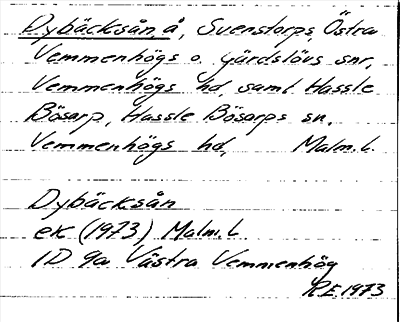 Dybäcksån, å, Svenstorps, Östra
Vemmenhögs o. Gärdslövs snr,
Vemmenhögs hd, saml. Hassle
Bösarp, Hassle Bösarps sn.
Vemmenhögs hd, Malm.l.
Dybäcksån
ek (1973) Malm.L
1D 9a Västra Vemmenhög
R.E. 1973